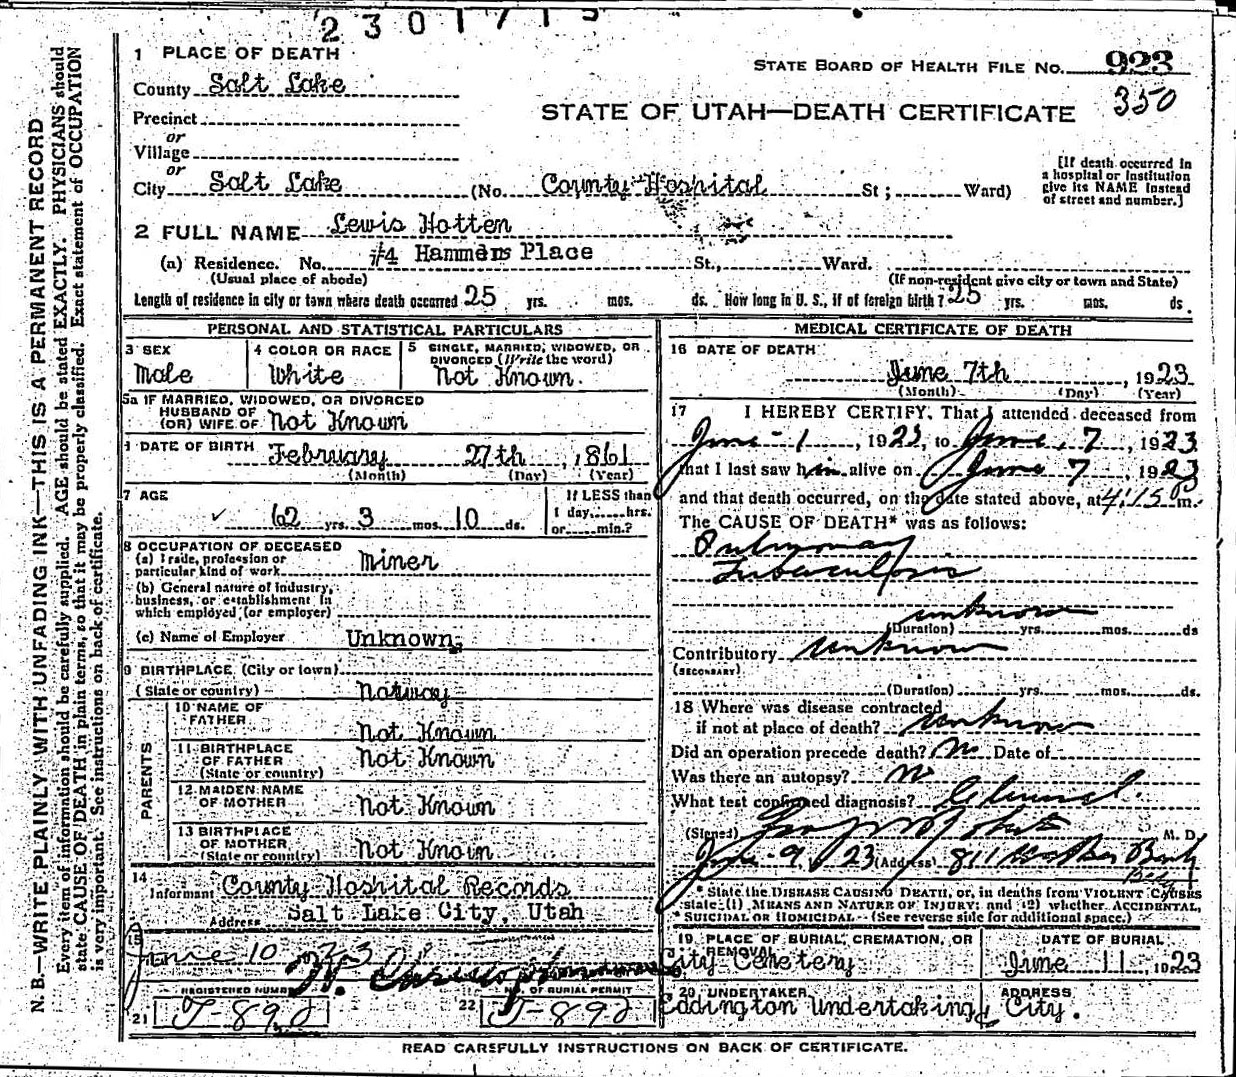 2301713
1 PLACE OF DEATH
STATE BOARD OF HEALTH FILE NO. 923
350
County Salt Lake
STATE OF UTAH—DEATH CERTIFICATE
Precinct
or
Village
or
City Salt Lake (No. County Hospital St; Ward)
[If death occurred in
a hospital or institution
give its NAME instead
of street and number.]
2 FULL NAME Lewis Hotten
(a) Residence. No. #4 Hammers Place St., Ward.
(Usual place of abode) (If non-resident give city or town and State)
Length of residence in city or town where death occurred 25 yrs. mos. ds. How long in U. S., if of foreign birth? 25 yrs. mos. ds.
PERSONAL AND STATISTICAL PARTICULARS
3 SEX
Male
4 COLOR OR RACE
White
5 SINGLE, MARRIED, WIDOWED, OR
DIVORCED (Write the word)
Not Known.
5a IF MARRIED, WIDOWED, OR DIVORCED
HUSBAND OF
(OR) WIFE OF Not Known
DATE OF BIRTH February 27th, 1861
(Month) (Day) (Year)
7 AGE
62 yrs. 3 mos. 10 ds.
If LESS than
1 day, hrs.
or min.?
8 OCCUPATION OF DECEASED
(a) Trade, profession or
particular kind of work Miner
(b) General nature of industry,
business, or establishment in
which employed (or employer)
(c) Name of Employer Unknown
9 BIRTHPLACE (City or town)
(State or country) Norway
PARENTS
10 NAME OF
FATHER Not Known
11 BIRTHPLACE
OF FATHER
(State or country) Not Known
12 MAIDEN NAME
OF MOTHER Not Known
13 BIRTHPLACE
OF MOTHER
(State or country) Not Known
14
Informant County Hospital Records
Address Salt Lake City, Utah
15
June 10 23
REGISTERED NUMBER
NO. OF BURIAL PERMIT
21 J-892
22 J-892
MEDICAL CERTIFICATE OF DEATH
16 DATE OF DEATH
June 7th, 1923
(Month) (Day) (Year)
17 I HEREBY CERTIFY, That I attended deceased from
June 1, 1923, to June 7, 1923
that I last saw him alive on June 7, 1923
and that death occurred, on the date stated above, at 4:15 P m.
The CAUSE OF DEATH* was as follows:
Pulmonary
Tuberculosis
unknown
(Duration) yrs. mos. ds
Contributory unknown
(SECONDARY)
(Duration) yrs. mos. ds.
18 Where was disease contracted
if not at place of death? unknown
Did an operation precede death? No Date of
Was there an autopsy? No
What test confirmed diagnosis? Clinical.
(Signed) M. D.
June 9, 23 (Address) 811 Walker Bank
* State the DISEASE CAUSING DEATH, or, in deaths from VIOLENT CAUSES
state (1) MEANS AND NATURE OF INJURY; and (2) whether ACCIDENTAL,
SUICIDAL or HOMICIDAL (See reverse side for additional space.)
19 PLACE OF BURIAL, CREMATION, OR
REMOVAL
City Cemetery
DATE OF BURIAL
June 11, 1923
20 UNDERTAKER
Eddington Undertaking
ADDRESS
City.
READ CAREFULLY INSTRUCTIONS ON BACK OF CERTIFICATE.
N. B.—WRITE PLAINLY WITH UNFADING INK—THIS IS A PERMANENT RECORD
Every item of information should be carefully supplied. AGE should be stated EXACTLY. PHYSICIANS should
state CAUSE OF DEATH in plain terms, so that it may be properly classified. Exact statement of OCCUPATION
is very important. See instructions on back of certificate.